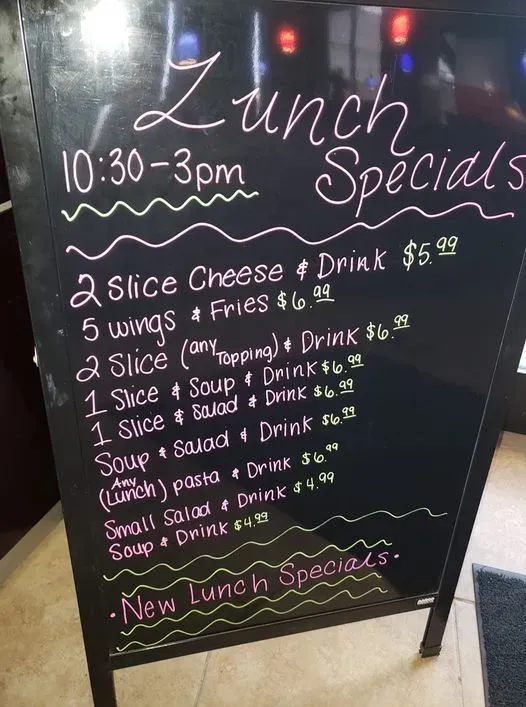 Lunch
Specials
10:30-3pm
2 Slice Cheese & Drink $5.99
5 wings & Fries $6.99
2 Slice (any Topping) & Drink $6.99
1 Slice & Soup & Drink $6.99
1 Slice & Salad & Drink $6.99
Soup & Salad & Drink $6.99
(Any Lunch) pasta & Drink $6.99
Small Salad & Drink $4.99
Soup & Drink $4.99
·New Lunch Specials·